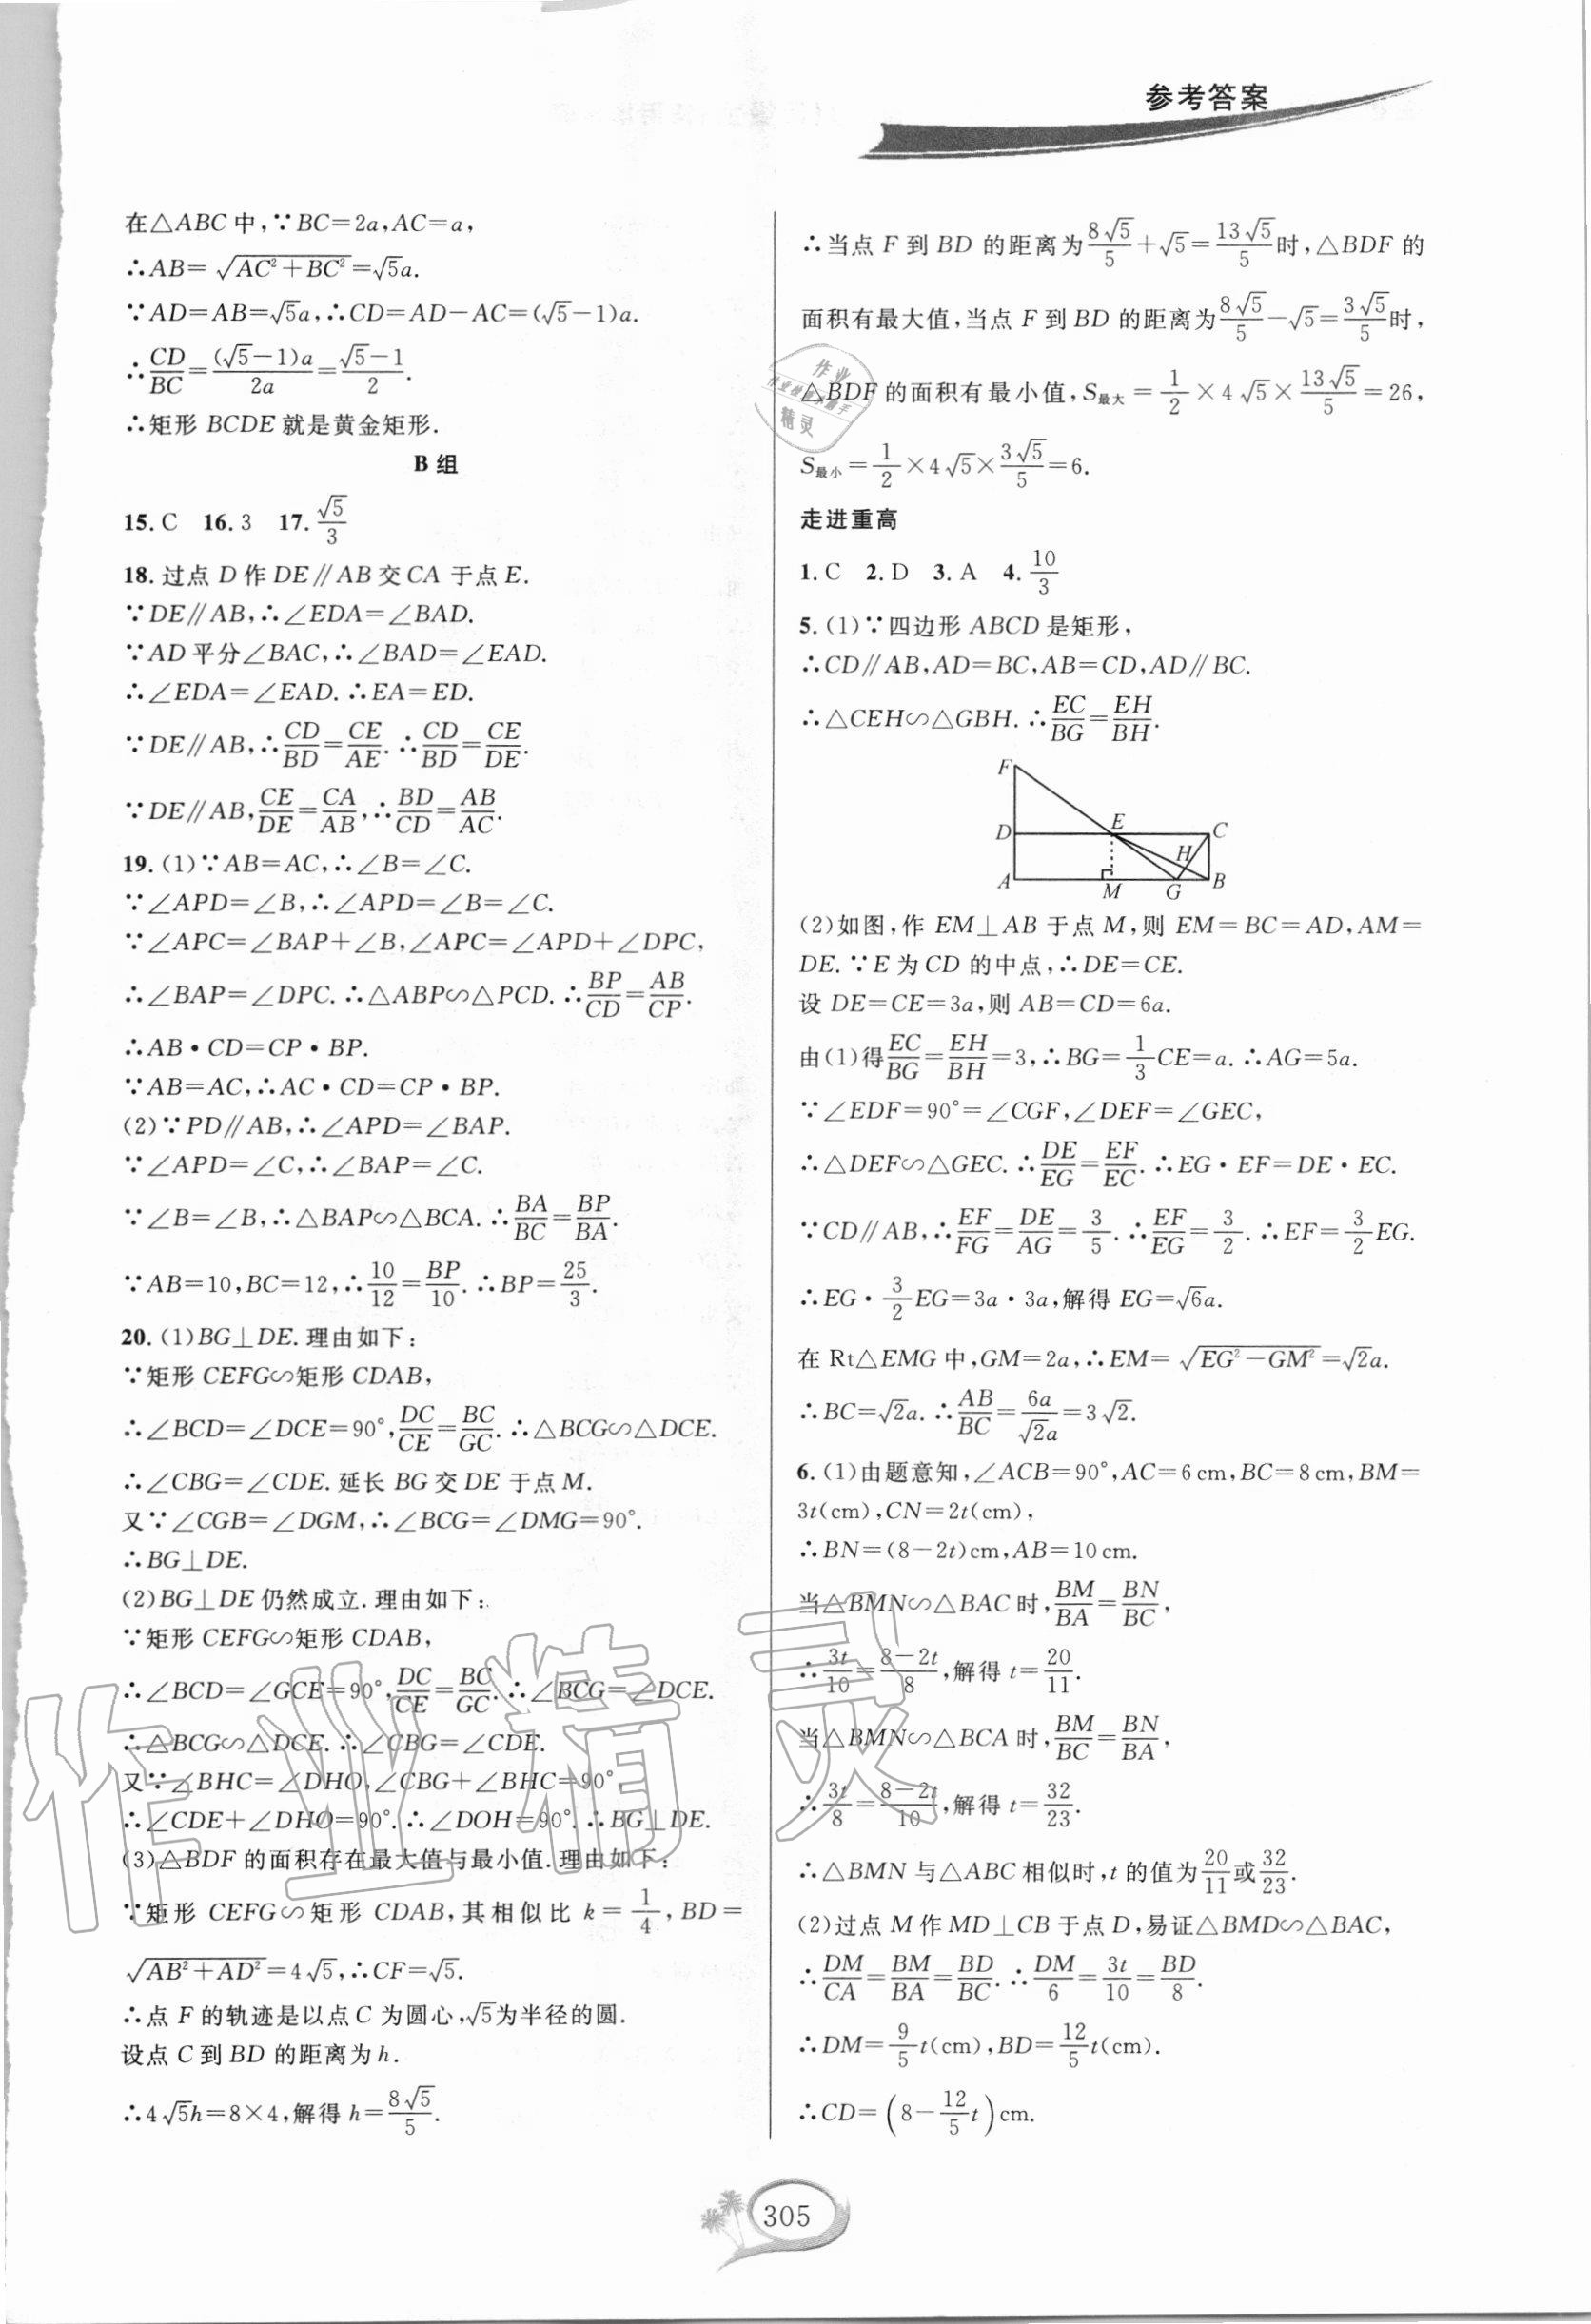 参考答案
在△ABC中,∵BC=2a,AC=a,
∴AB=√(AC²+BC²)=√5a.
∵AD=AB=√5a,∴CD=AD-AC=(√5-1)a.
∴CD/BC=(√5-1)a/2a=(√5-1)/2.
∴矩形 BCDE 就是黄金矩形.
B 组
15. C 16. 3 17. √5/3
18. 过点 D 作 DE∥AB 交 CA 于点 E.
∵DE∥AB,∴∠EDA=∠BAD.
∵AD 平分∠BAC,∴∠BAD=∠EAD.
∴∠EDA=∠EAD.∴EA=ED.
∵DE∥AB,∴CD/BD=CE/AE.∴CD/BD=CE/DE.
∵DE∥AB,CE/DE=CA/AB,∴BD/CD=AB/AC.
19. (1)∵AB=AC,∴∠B=∠C.
∵∠APD=∠B,∴∠APD=∠B=∠C.
∵∠APC=∠BAP+∠B,∠APC=∠APD+∠DPC,
∴∠BAP=∠DPC.∴△ABP∽△PCD.∴BP/CD=AB/CP.
∴AB·CD=CP·BP.
∵AB=AC,∴AC·CD=CP·BP.
(2)∵PD∥AB,∴∠APD=∠BAP.
∵∠APD=∠C,∴∠BAP=∠C.
∵∠B=∠B,∴△BAP∽△BCA.∴BA/BC=BP/BA.
∵AB=10,BC=12,∴10/12=BP/10.∴BP=25/3.
20. (1)BG⊥DE.理由如下:
∵矩形 CEFG∽矩形 CDAB,
∴∠BCD=∠DCE=90°,DC/CE=BC/GC.∴△BCG∽△DCE.
∴∠CBG=∠CDE.延长 BG 交 DE 于点 M.
又∵∠CGB=∠DGM,∴∠BCG=∠DMG=90°.
∴BG⊥DE.
(2)BG⊥DE 仍然成立.理由如下:
∵矩形 CEFG∽矩形 CDAB,
∴∠BCD=∠GCE=90°,DC/CE=BC/GC.∴∠BCG=∠DCE.
∴△BCG∽△DCE.∴∠CBG=∠CDE.
又∵∠BHC=∠DHO,∠CBG+∠BHC=90°,
∴∠CDE+∠DHO=90°.∴∠DOH=90°.∴BG⊥DE.
(3)△BDF 的面积存在最大值与最小值.理由如下:
∵矩形 CEFG∽矩形 CDAB,其相似比 k=1/4,BD=
√(AB²+AD²)=4√5,∴CF=√5.
∴点 F 的轨迹是以点 C 为圆心,√5为半径的圆.
设点 C 到 BD 的距离为 h.
∴4√5h=8×4,解得 h=8√5/5.
∴当点 F 到 BD 的距离为8√5/5+√5=13√5/5时,△BDF 的
面积有最大值,当点 F 到 BD 的距离为8√5/5-√5=3√5/5时,
△BDF 的面积有最小值,S最大=1/2×4√5×13√5/5=26,
S最小=1/2×4√5×3√5/5=6.
走进重高
1. C 2. D 3. A 4. 10/3
5. (1)∵四边形 ABCD 是矩形,
∴CD∥AB,AD=BC,AB=CD,AD∥BC.
∴△CEH∽△GBH.∴EC/BG=EH/BH.
F
D E C
H
A M G B
(2)如图,作 EM⊥AB 于点 M,则 EM=BC=AD,AM=
DE.∵E 为 CD 的中点,∴DE=CE.
设 DE=CE=3a,则 AB=CD=6a.
由(1)得EC/BG=EH/BH=3,∴BG=1/3CE=a.∴AG=5a.
∵∠EDF=90°=∠CGF,∠DEF=∠GEC,
∴△DEF∽△GEC.∴DE/EG=EF/EC.∴EG·EF=DE·EC.
∵CD∥AB,∴EF/FG=DE/AG=3/5.∴EF/EG=3/2.∴EF=3/2EG.
∴EG·3/2EG=3a·3a,解得 EG=√6a.
在 Rt△EMG 中,GM=2a,∴EM=√(EG²-GM²)=√2a.
∴BC=√2a.∴AB/BC=6a/√2a=3√2.
6. (1)由题意知,∠ACB=90°,AC=6 cm,BC=8 cm,BM=
3t(cm),CN=2t(cm),
∴BN=(8-2t)cm,AB=10 cm.
当△BMN∽△BAC 时,BM/BA=BN/BC,
∴3t/10=(8-2t)/8,解得 t=20/11.
当△BMN∽△BCA 时,BM/BC=BN/BA,
∴3t/8=(8-2t)/10,解得 t=32/23.
∴△BMN 与△ABC 相似时,t 的值为20/11或32/23.
(2)过点 M 作 MD⊥CB 于点 D,易证△BMD∽△BAC,
∴DM/CA=BM/BA=BD/BC.∴DM/6=3t/10=BD/8.
∴DM=9/5t(cm),BD=12/5t(cm).
∴CD=(8-12/5t)cm.
305
作业精灵